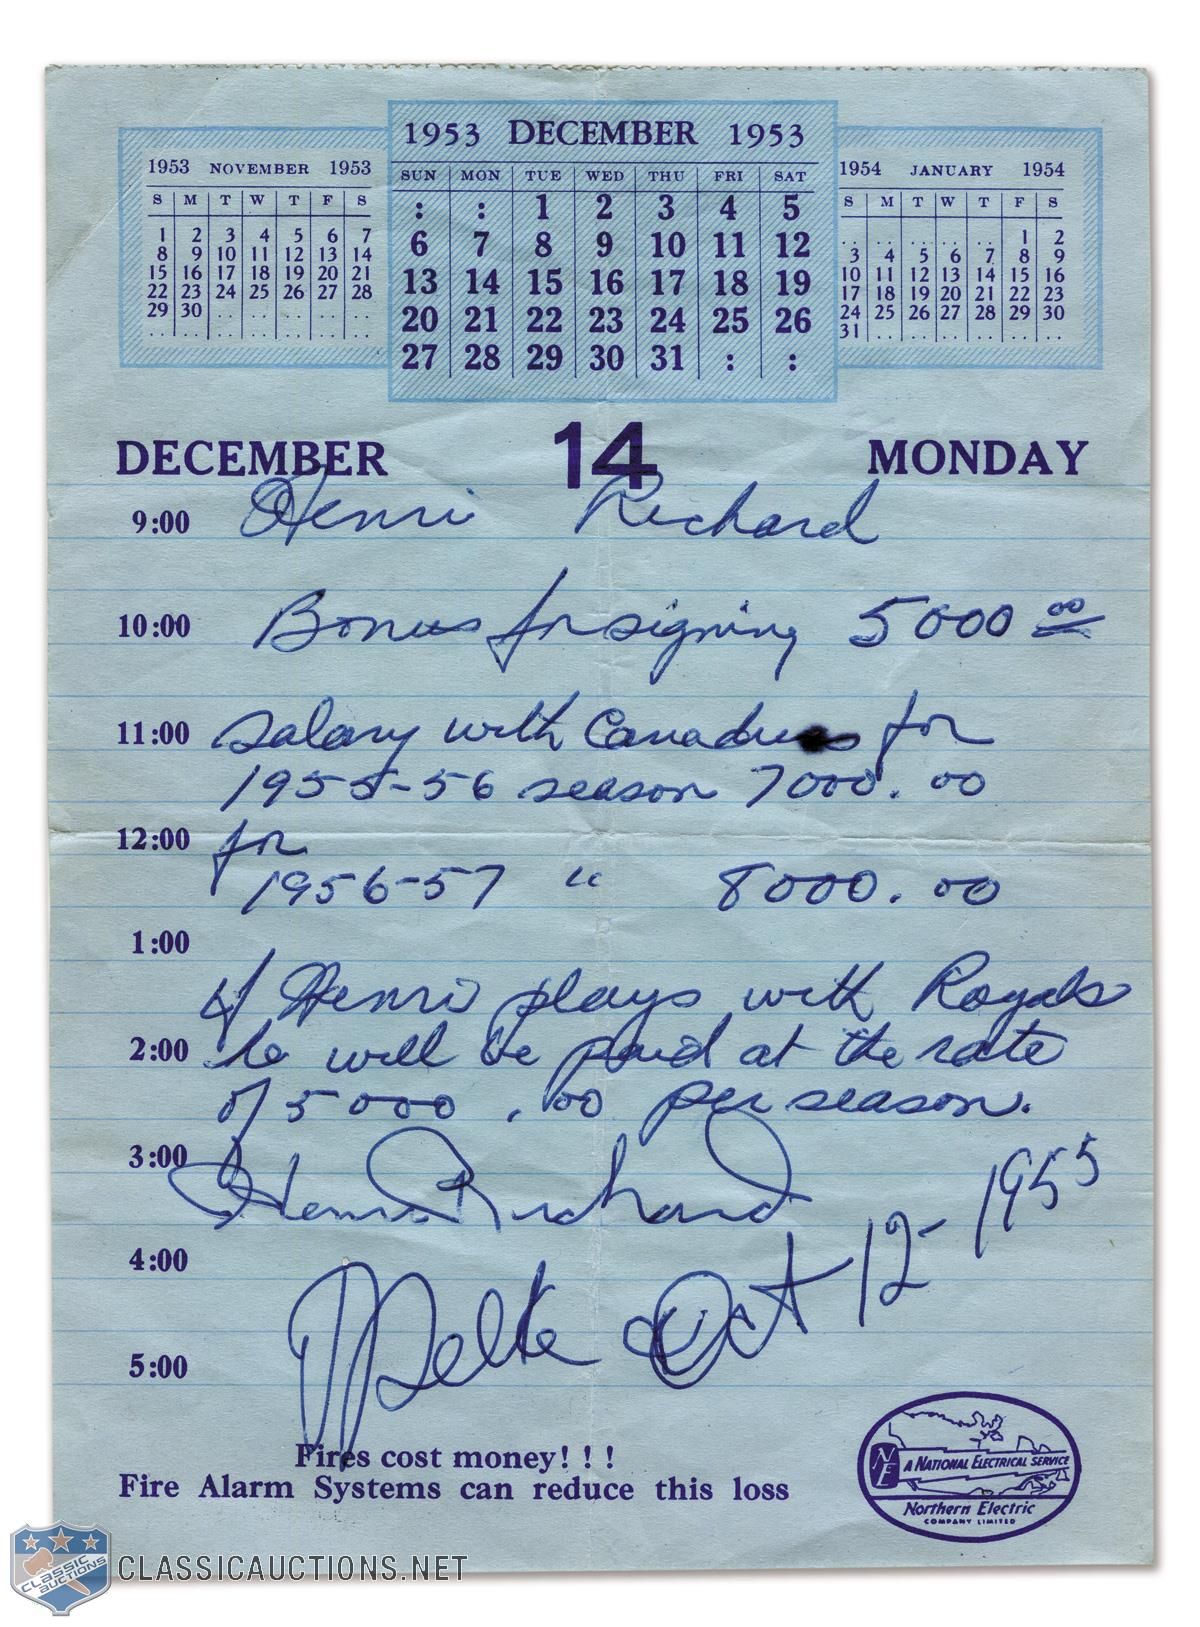 1953 NOVEMBER 1953
S M T W T F S
1 2 3 4 5 6 7
8 9 10 11 12 13 14
15 16 17 18 19 20 21
22 23 24 25 26 27 28
29 30 . . . . . . . . . .
. . . . . . . . . . . . . .
1953 DECEMBER 1953
SUN MON TUE WED THU FRI SAT
: : 1 2 3 4 5
6 7 8 9 10 11 12
13 14 15 16 17 18 19
20 21 22 23 24 25 26
27 28 29 30 31 : :
1954 JANUARY 1954
S M T W T F S
. . . . . . . . . . 1 2
3 4 5 6 7 8 9
10 11 12 13 14 15 16
17 18 19 20 21 22 23
24 25 26 27 28 29 30
31 . . . . . . . . . . . .
DECEMBER 14 MONDAY
9:00 Henri Richard
10:00 Bonus for signing 5000 00
11:00 salary with Canadiens for
1955-56 season 7000.00
12:00 for
1956-57 " 8000.00
1:00
if Henri plays with Royals
2:00 he will be paid at the rate
of 5000.00 per season.
3:00 Henri Richard
4:00 Oct 12 - 1955
5:00
Fires cost money!!!
Fire Alarm Systems can reduce this loss
NE A NATIONAL ELECTRICAL SERVICE
Northern Electric
COMPANY LIMITED
CLASSIC AUCTIONS
CLASSICAUCTIONS.NET